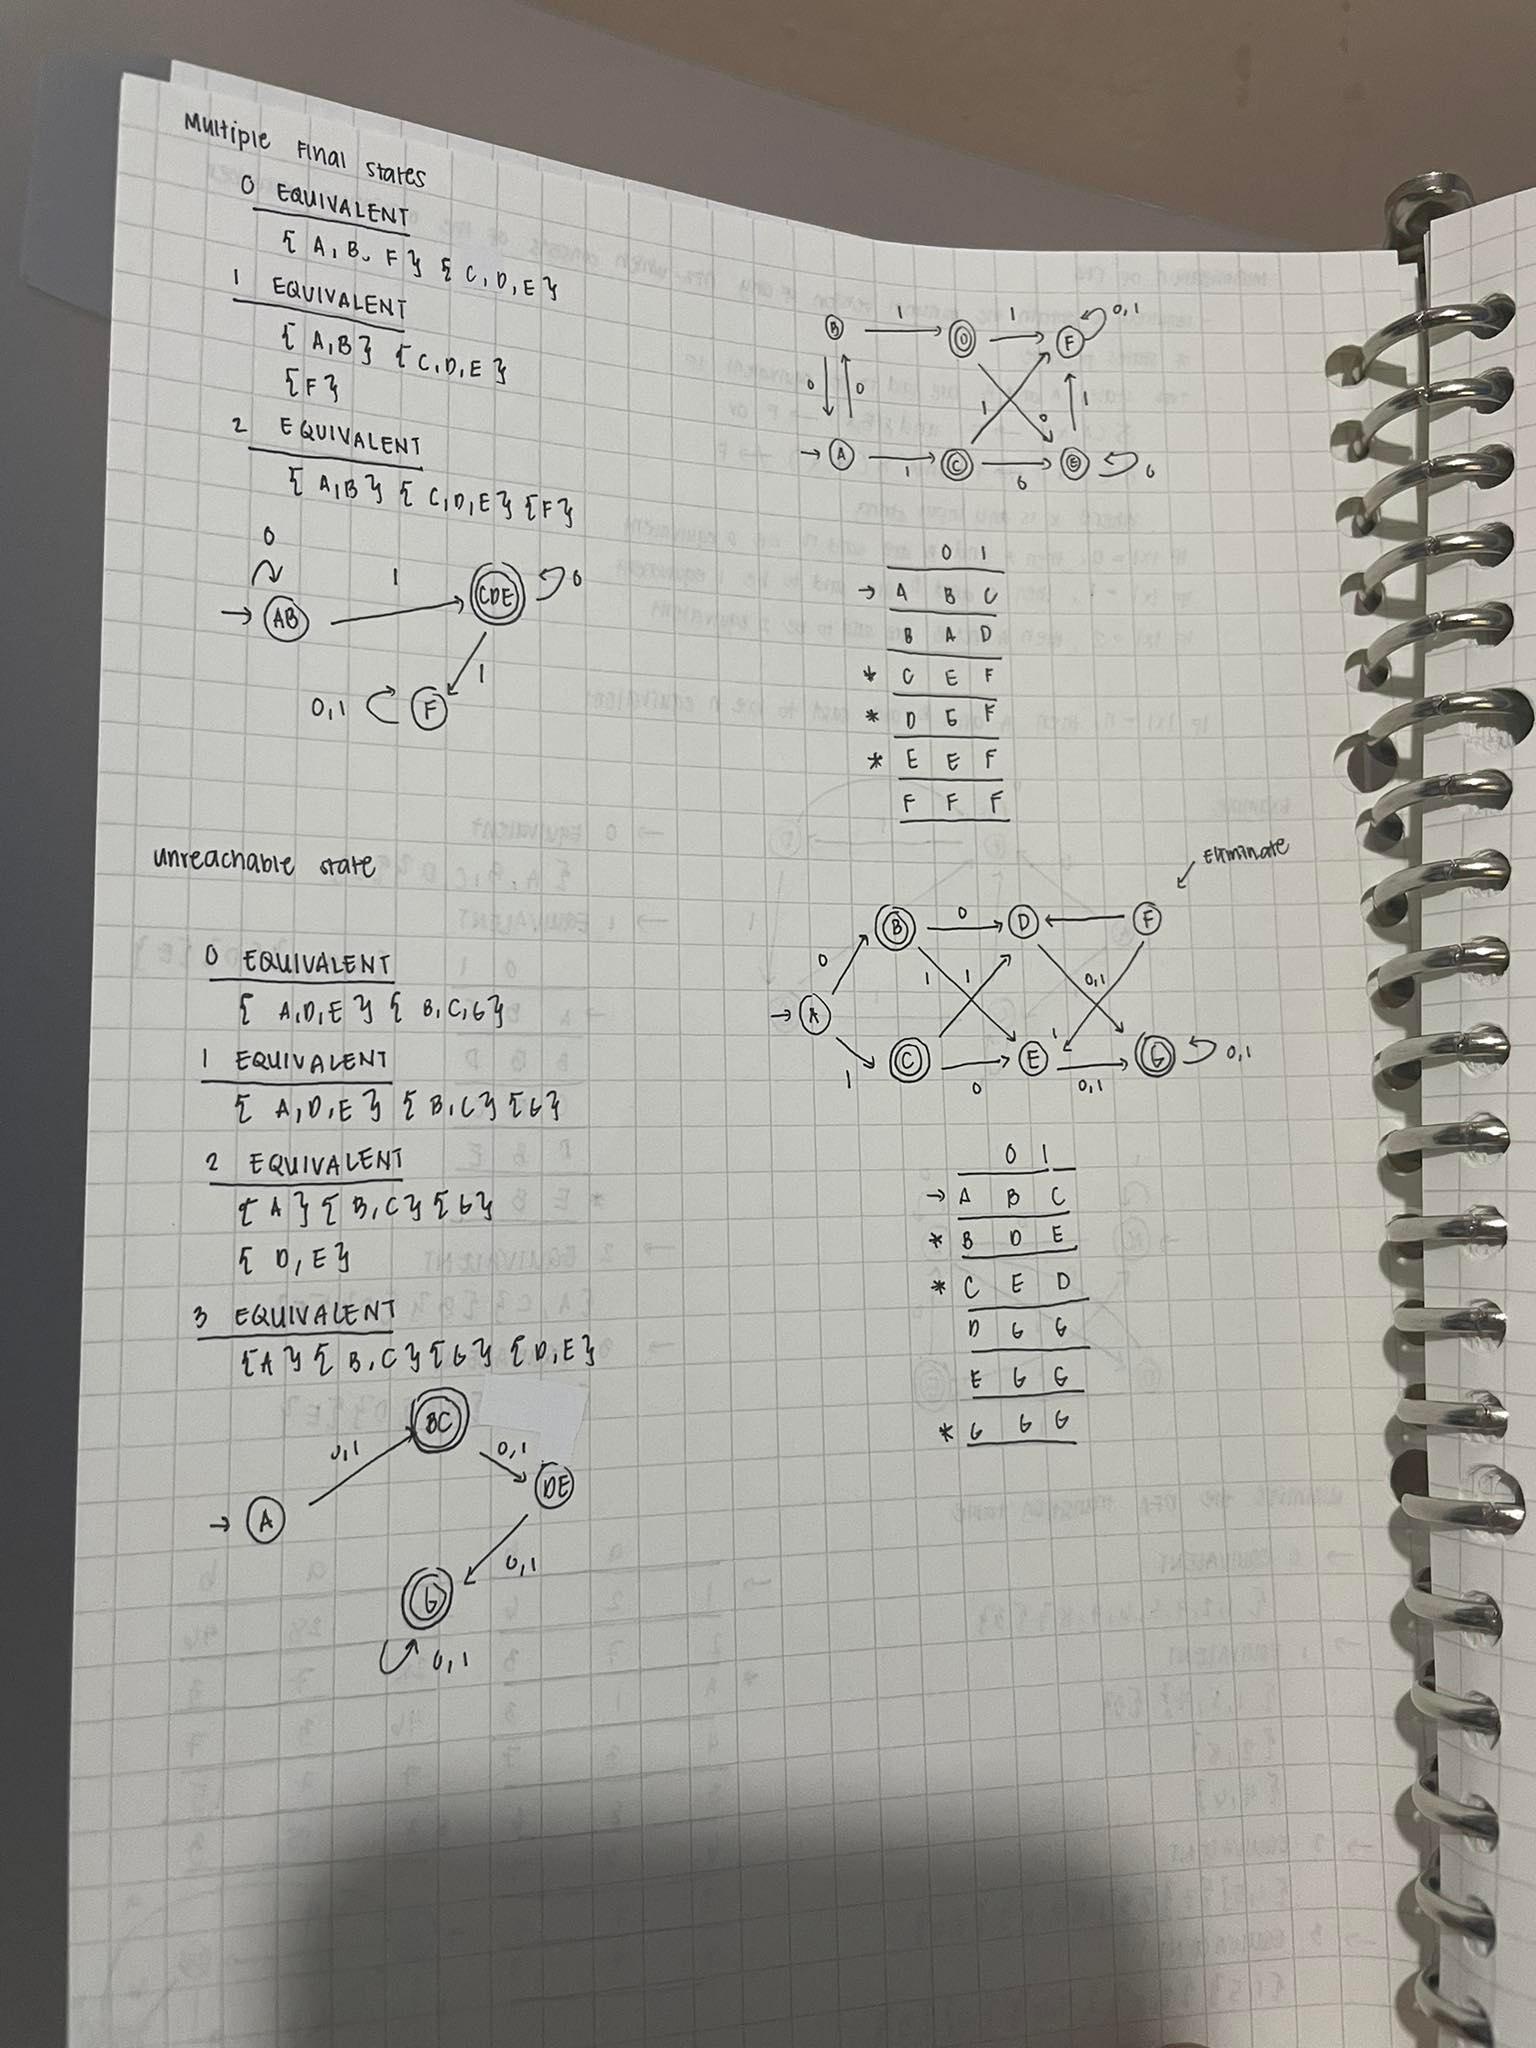 Multiple Final states
0 EQUIVALENT
{ A, B, F } { C, D, E }
1 EQUIVALENT
{ A, B } { C, D, E }
{ F }
2 EQUIVALENT
{ A, B } { C, D, E } { F }
0
→ AB 1 CDE 0
1
0,1 F
B 1 D 1 F 0,1
0 0 1 0 1
→ A 1 C 0 E 0
0 1
→ A B C
B A D
* C E F
* D E F
* E E F
F F F
Unreachable state
0 EQUIVALENT
{ A, D, E } { B, C, G }
1 EQUIVALENT
{ A, D, E } { B, C } { G }
2 EQUIVALENT
{ A } { B, C } { G }
{ D, E }
3 EQUIVALENT
{ A } { B, C } { G } { D, E }
BC
0,1 0,1
DE
→ A
0,1
G
0,1
Eliminate
B 0 D F
0 1 1 0,1
→ A
1 C 0 E 1 0,1 G 0,1
0 1
→ A B C
* B D E
* C E D
D G G
E G G
* G G G